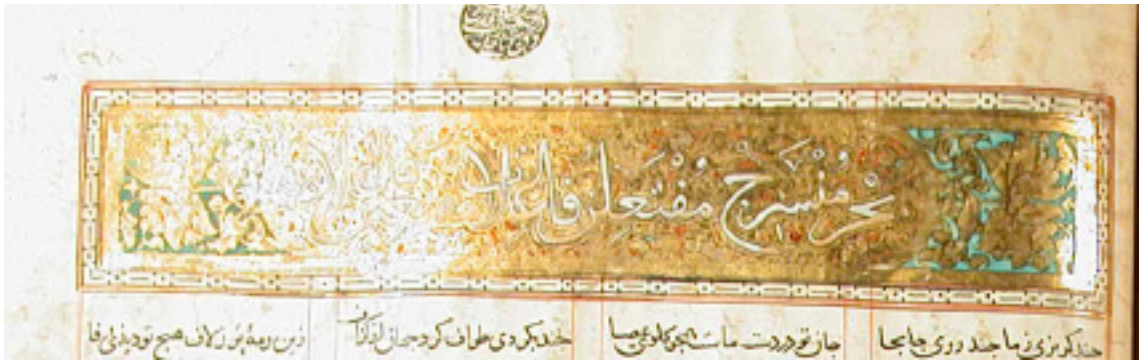 بَحْر مُنْسَرِحْ مُفْتَعِلُنْ
جند کریزی ز ما جند روی جابجا جان تو در دست ماست همجو کلوی عصا جند بکردی طواف کرد جهان از کزاف زین رمهٔ بر ز لاف هیج تو دیدی وفا